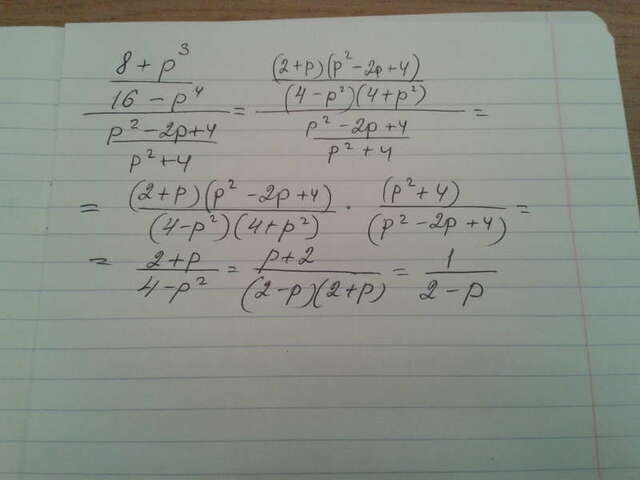 (8 + p³)/(16 - p⁴) / (p² - 2p + 4)/(p² + 4) = (2+p)(p² - 2p + 4)/(4 - p²)(4 + p²) / (p² - 2p + 4)/(p² + 4) =
= (2+p)(p² - 2p + 4)/(4 - p²)(4 + p²) · (p² + 4)/(p² - 2p + 4) =
= 2+p/4 - p² = p+2/(2 - p)(2 + p) = 1/2 - p